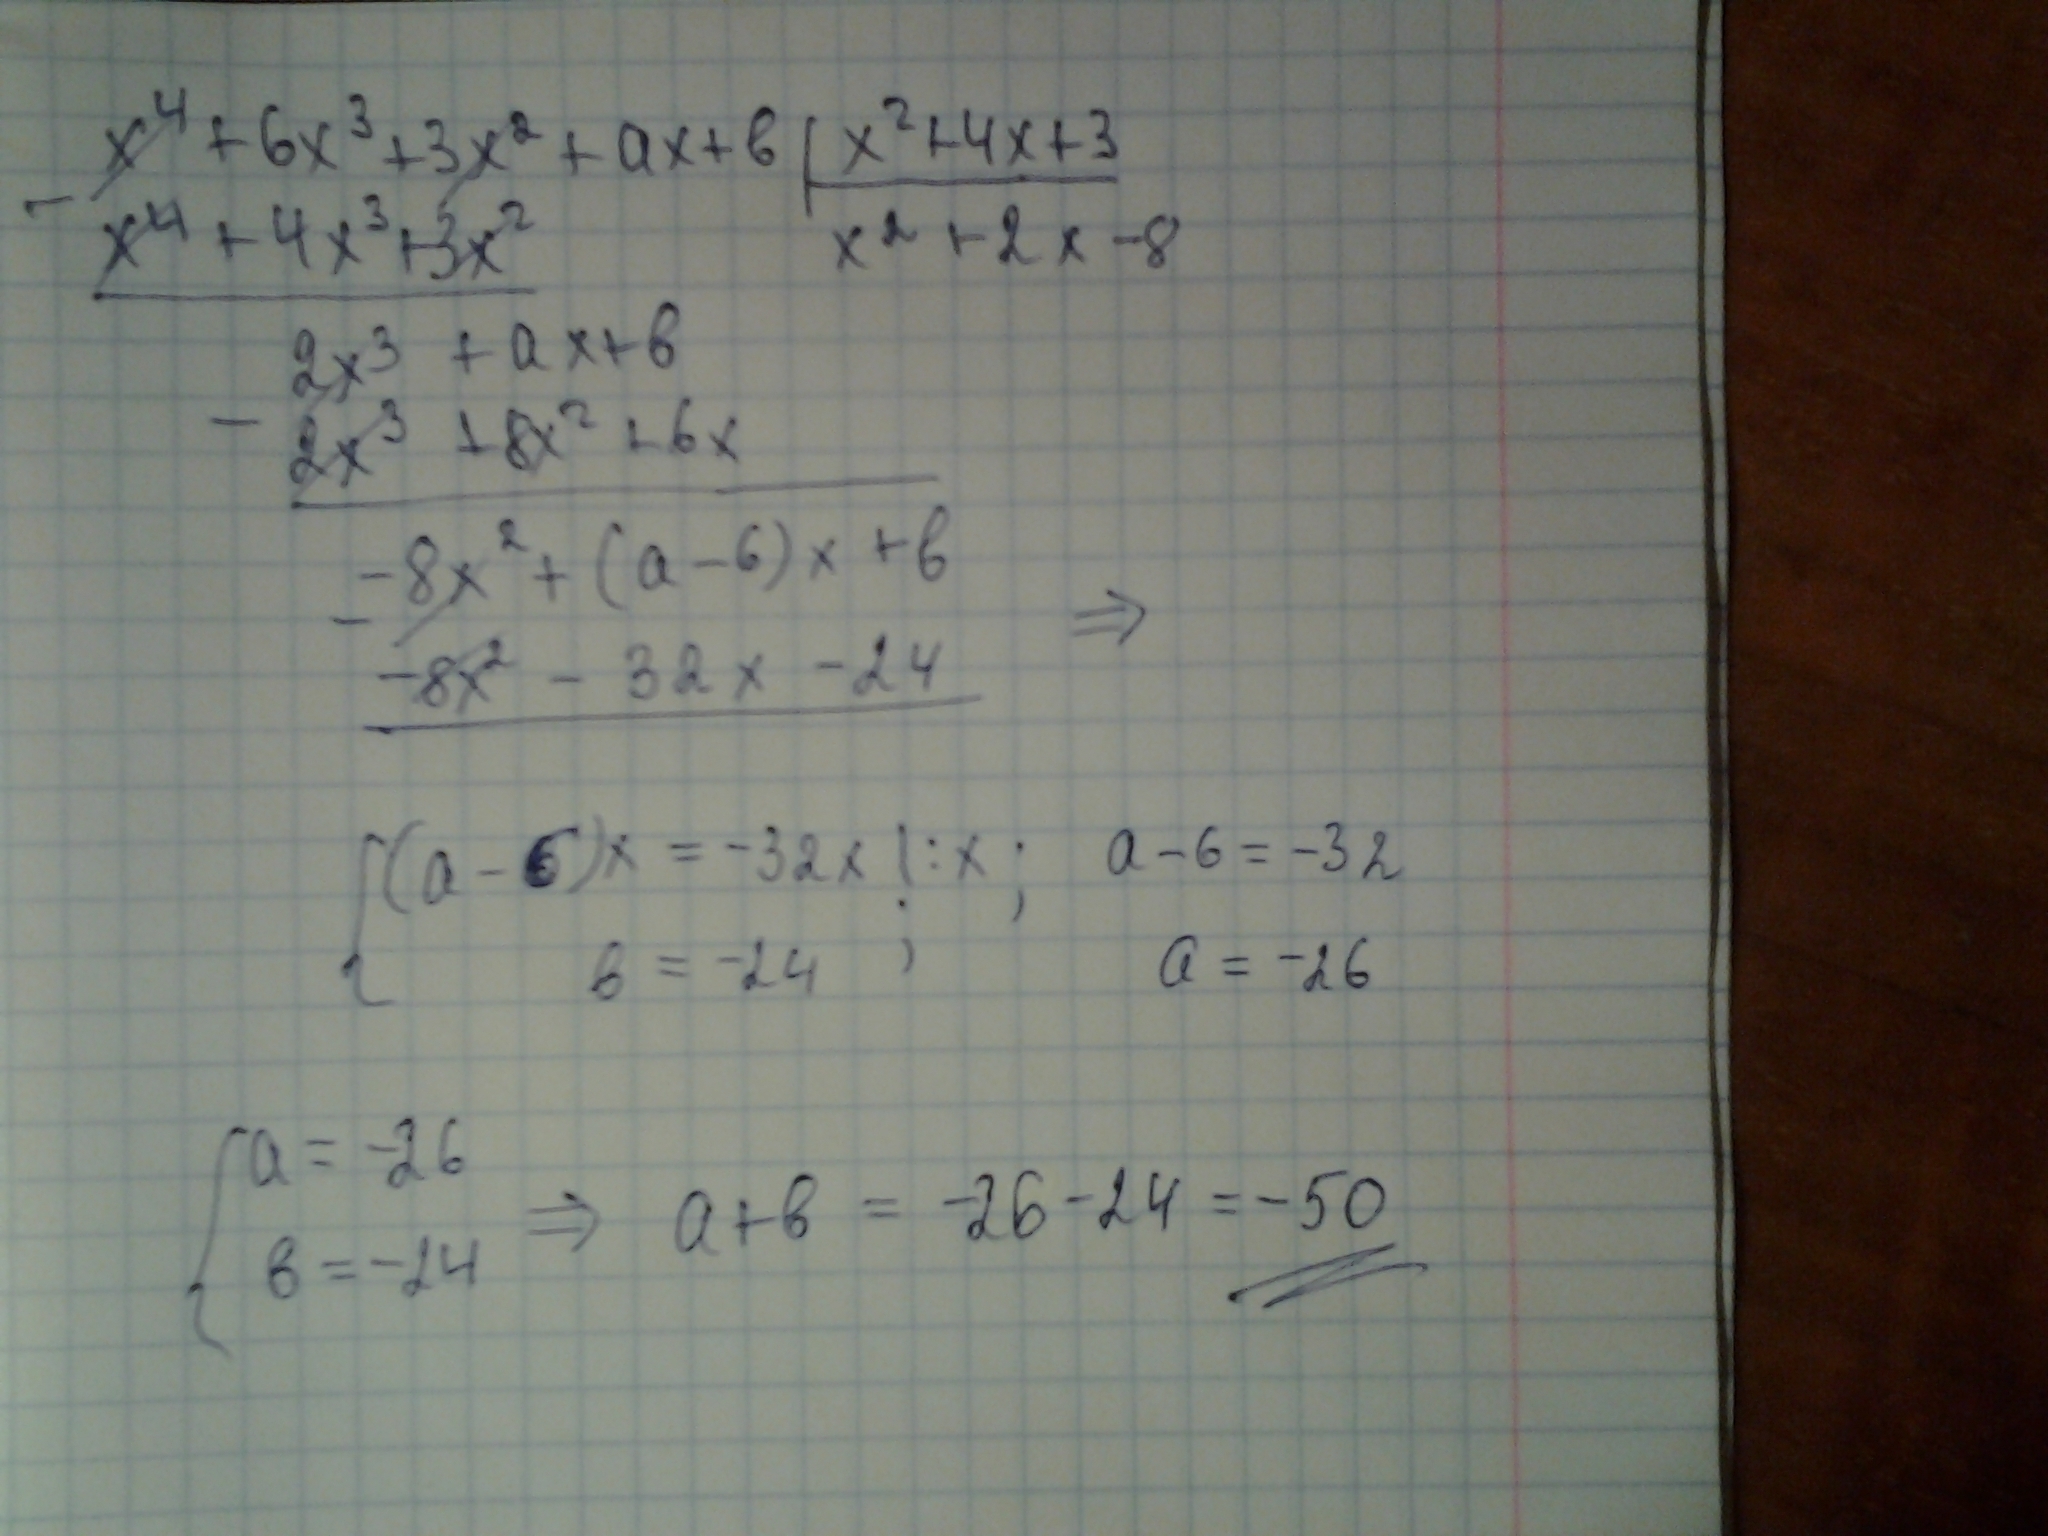 x⁴ + 6x³ + 3x² + ax + в | x² + 4x + 3
− x⁴ + 4x³ + 3x² x² + 2x − 8
2x³ + ax + в
− 2x³ + 8x² + 6x
−8x² + (a − 6)x + в
− −8x² − 32x − 24 ⇒
{ (a − 6)x = −32x | : x ; a − 6 = −32
в = −24 ; a = −26
{ a = −26
в = −24 ⇒ a + в = −26 − 24 = −50